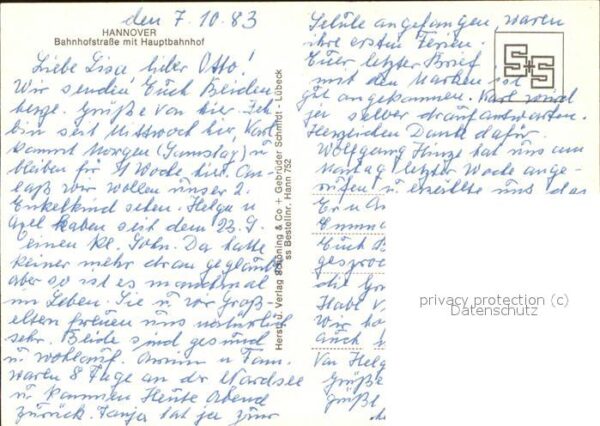 den 7.10.83
HANNOVER
Bahnhofstraße mit Hauptbahnhof
Liebe Lisa, lieber Otto!
Wir senden Euch Beiden
herzl. Grüße von hier. Ich
bin seit Mittwoch hier, Karl
kommt Morgen (Samstag) u
bleiben für 1 Woche hier. An-
laß wir wollen unser 2.
Enkelkind sehen. Helga u
Axel haben seit dem 23. 9.
einen kl. Sohn. Da hatte
keiner mehr dran geglaubt
aber so ist es manchmal
im Leben. Sie u wir Groß-
eltern freuen uns natürlich
sehr. Beide sind gesund
u wohlauf. Armin u Fam.
waren 8 Tage an der Nordsee
u kommen Heute Abend
zurück. Tanja hat ja zur
Herst. u. Verlag Schöning & Co + Gebrüder Schmidt - Lübeck
ss Bestellnr. Hann 752
Schule angefangen, waren
ihre ersten Ferien.
Euer letzter Brief
mit den Marken ist
gut angekommen. Karl wird
ja selber drauf antworten.
Herzlichen Dank dafür.
Wolfgang Hinze hat uns am
Montag letzter Woche ange-
rufen u erzählte uns das
Er u An
Emma
Euch B
gesproc
die Gr
Habt V
Wir ha
auch
Von Helg
Grüße
Grüße
S+S
privacy protection (c)
Datenschutz